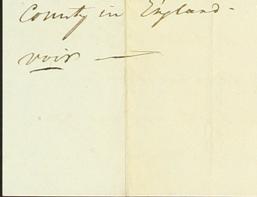 County in England -
voir —